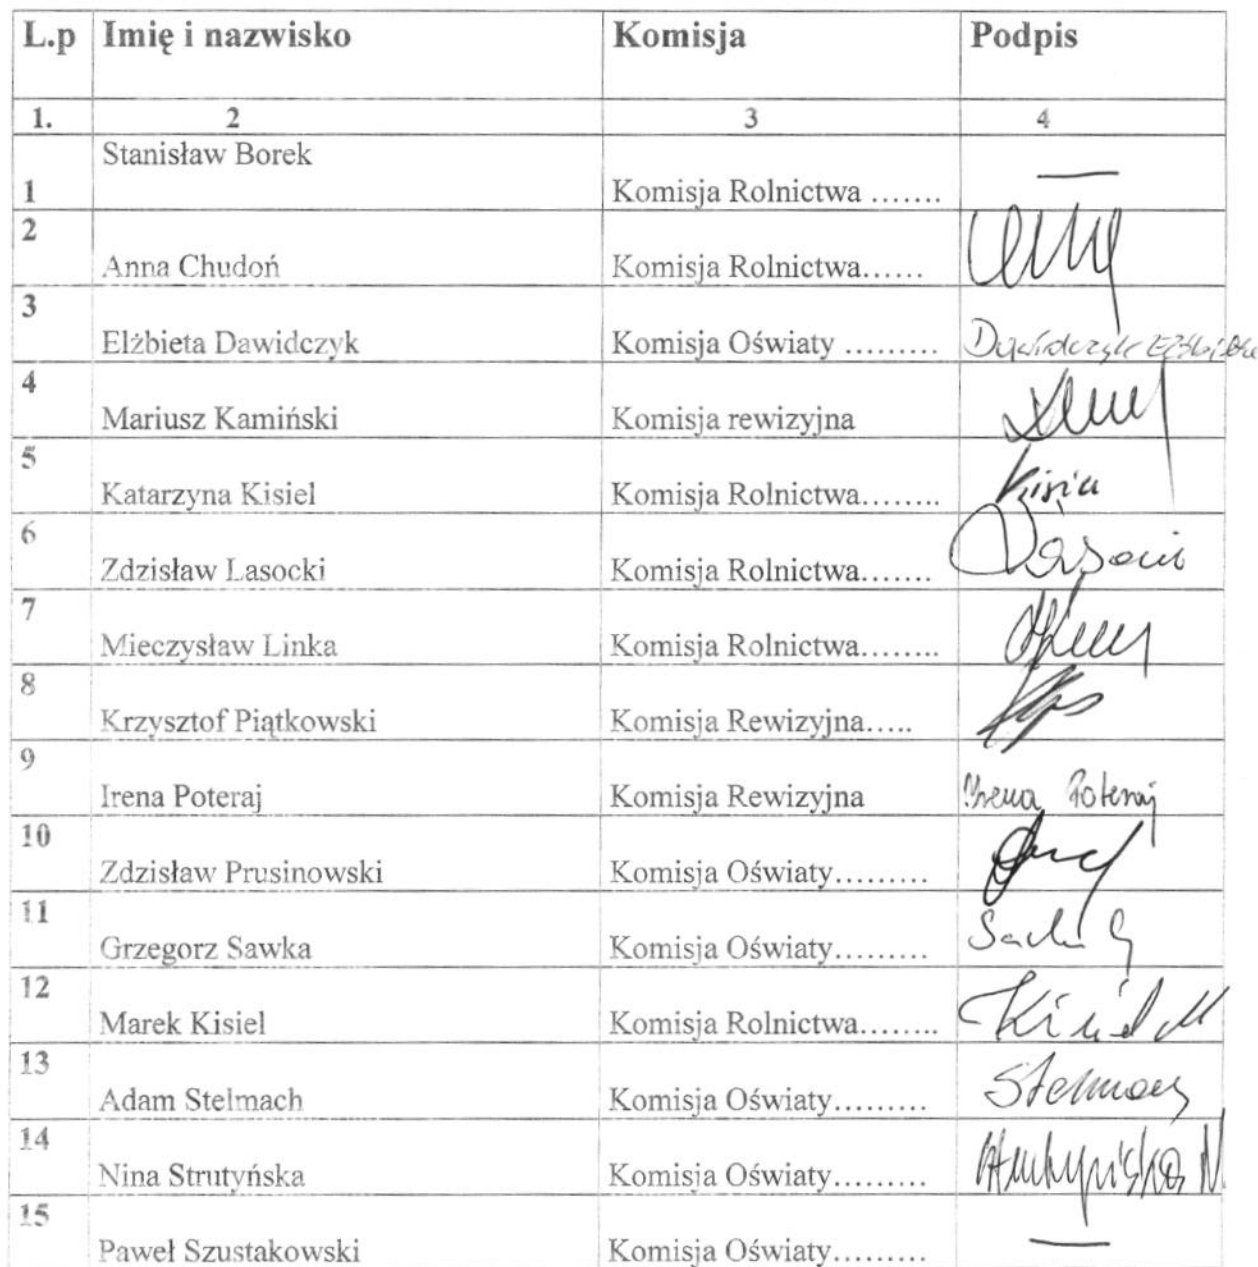 L.p Imię i nazwisko Komisja Podpis
1. 2 3 4
Stanisław Borek
1 Komisja Rolnictwa ....... —
2
Anna Chudoń Komisja Rolnictwa......
3
Elżbieta Dawidczyk Komisja Oświaty ......... Dawidczyk Elżbieta
4
Mariusz Kamiński Komisja rewizyjna
5
Katarzyna Kisiel Komisja Rolnictwa........ Kisiel
6
Zdzisław Lasocki Komisja Rolnictwa.......
7
Mieczysław Linka Komisja Rolnictwa........
8
Krzysztof Piątkowski Komisja Rewizyjna.....
9
Irena Poteraj Komisja Rewizyjna Irena Poteraj
10
Zdzisław Prusinowski Komisja Oświaty.........
11
Grzegorz Sawka Komisja Oświaty.........
12
Marek Kisiel Komisja Rolnictwa........ Kisiel M
13
Adam Stelmach Komisja Oświaty......... Stelmach
14
Nina Strutyńska Komisja Oświaty......... Strutyńska N.
15
Paweł Szustakowski Komisja Oświaty......... —